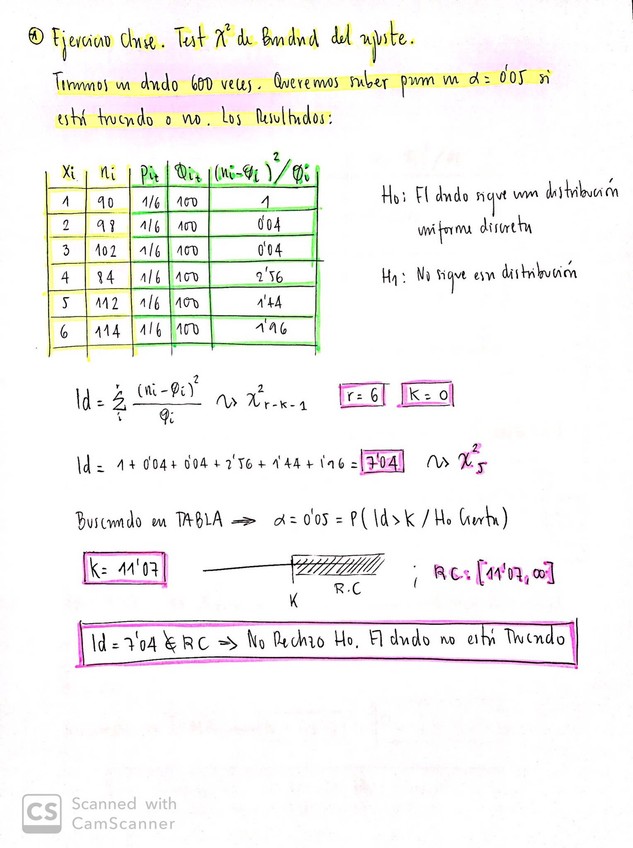 ① Ejercicio Clase. Test χ² de Bondad del ajuste.
Tiramos un dado 600 veces. Queremos saber para un α = 0'05 si
está trucado o no. Los Resultados:
Xi ni Pit Φit (ni-Φi)²/Φi
1 90 1/6 100 1
2 98 1/6 100 0'04
3 102 1/6 100 0'04
4 84 1/6 100 2'56
5 112 1/6 100 1'44
6 114 1/6 100 1'96
H0: El dado sigue una distribución
uniforme discreta
H1: No sigue esa distribución
Id = Σ (ni-Φi)² / Φi ~> χ² r-k-1 r = 6 K = 0
Id = 1 + 0'04 + 0'04 + 2'56 + 1'44 + 1'96 = 7'04 ~> χ²5
Buscando en TABLA ⇒ α = 0'05 = P(Id > K / Ho Cierta)
K = 11'07
K
R.C
; RC = [11'07, ∞]
Id = 7'04 ∉ RC ⇒ No Rechazo Ho. El dado no está Trucado
CS Scanned with
CamScanner